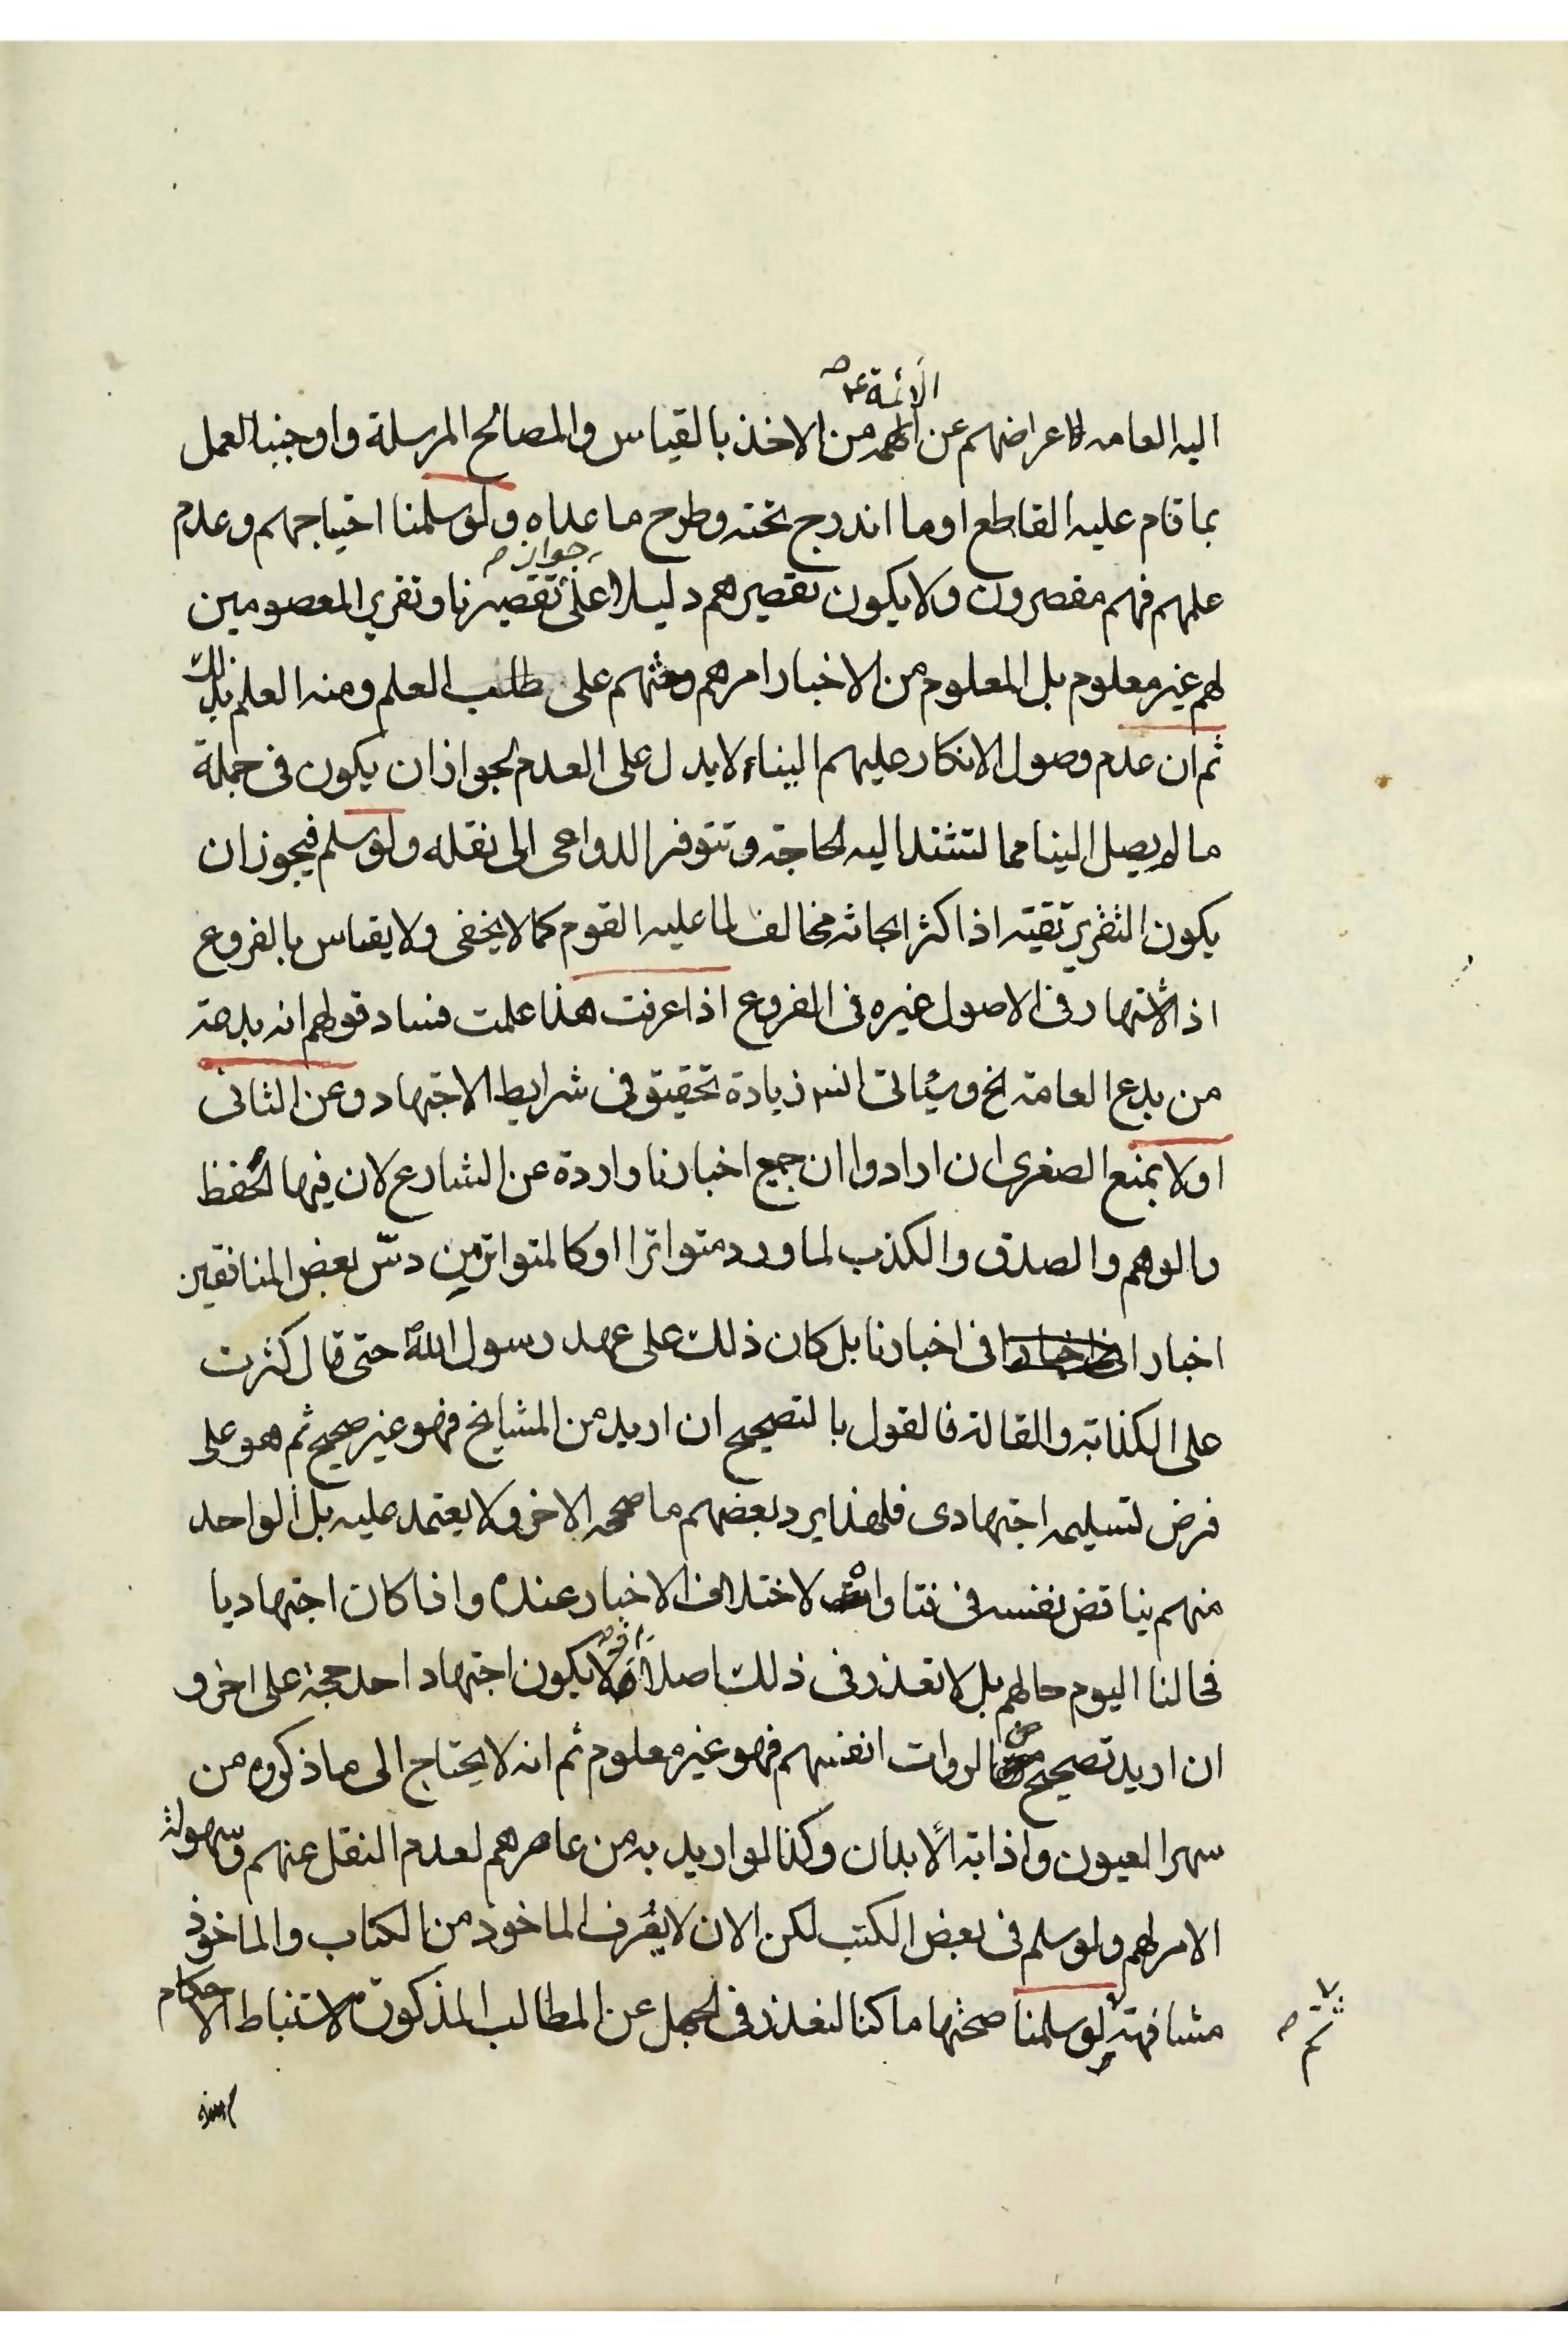 الائمة ع صح
اليه العامه لاعراضهم عن الهم من الاخذ بالقياس والمصالح المرسلة واوجبنا العمل
بما قام عليه القاطع او ما اندرج تحته وطرح ما عداه ولو سلمنا احتياجهم وعدم
جواز صح
علمهم فهم مقصرون ولا يكون تقصيرهم دليلا على تقصيرنا وتقرير المعصومين
لهم غير معلوم بل المعلوم من الاخبار امرهم وحثهم على طلب العلم ومنه العلم بذلك
ثم ان عدم وصول الانكار عليهم الينا لا يدل على العدم لجواز ان يكون فى جملة
ما لم يصل الينا مما لتشتد اليه الحاجة وتتوفر الدواعى الى نقله ولو سلم فيجوز ان
يكون التقرير تقية اذ اكثر ابحاثه مخالف لما عليه القوم كما لا يخفى ولا يقاس بالفروع
اذ الاشتهار فى الاصول غيره فى الفروع اذا عرفت هذا علمت فساد قولهم انه بدعة
من بدع العامة الخ وسياتى زيادة تحقيق فى شرايط الاجتهاد وعن الثانى
اولا بمنع الصغرى ان ارادوا ان جميع اخبارنا واردة عن الشارع لان فيها الحفظ
والوهم والصدق والكذب لما ورد متواترا او كالمتواتر من دس بعض المنافقين
اخبارا فى اخبارنا بل كان ذلك على عهد رسول الله ص حتى قال كثرت
على الكذابة والقالة فالقول بالتصحيح ان اريد من المشايخ فهو غير صحيح ثم هو على
فرض تسليمه اجتهادى فلهذا يرد بعضهم ما صححه الاخر ولا يعتمد عليه بل الواحد
منهم يناقض نفسه فى فتاواه لاختلاف الاخبار عنده واذا كان اجتهاديا
فحالنا اليوم حالهم بل لا تعذر فى ذلك اصلا لا يكون اجتهاد احد حجة على اخر و
ان اريد تصحيح من الروات انفسهم فهو غير معلوم ثم انه لا يحتاج الى ما ذكروه من
سهر العيون واذابة الابدان وكذا لو اريد به من عاصرهم لعدم النقل عنهم وسهولة
الامر لهم ولو سلم فى بعض الكتب لكن الان لا يعرف الماخوذ من الكتاب والماخوذ
مشافهة لو سلمنا صحتها ما كنا لنعذر فى الجهل عن المطالب المذكورة لاستنباط الاحكام
ثم صح